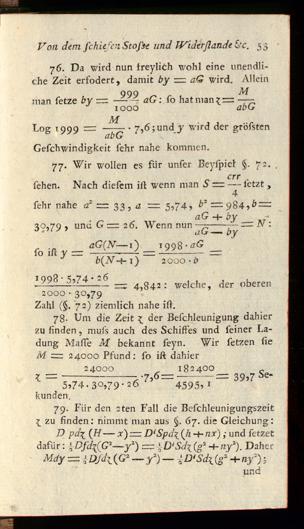 Von dem schiefen Stoße und Widerstande &c. 53
76. Da wird nun freylich wohl eine unendli-
che Zeit erfodert, damit by = aG wird. Allein
man setze by = 999/1000 aG: so hat man ɀ = M/abG
Log 1999 = M/abG · 7,6; und y wird der größten
Geschwindigkeit sehr nahe kommen.
77. Wir wollen es für unser Beyspiel §. 72.
sehen. Nach diesem ist wenn man S = crr/4 setzt,
sehr nahe a² = 33, a = 5,74, b² = 984, b =
30,79, und G = 26. Wenn nun (aG + by)/(aG — by) = N:
so ist y = aG(N—1)/b(N+1) = 1998 · aG/2000 · b =
1998 · 5,74 · 26/2000 · 30,79 = 4,842: welche, der oberen
Zahl (§. 72) ziemlich nahe ist.
78. Um die Zeit ɀ der Beschleunigung dahier
zu finden, muss auch des Schiffes und seiner La-
dung Masse M bekannt seyn. Wir setzen sie
M = 24000 Pfund: so ist dahier
ɀ = 24000/5,74 · 30,79 · 26 · 7,6 = 182400/4595,1 = 39,7 Se-
kunden.
79. Für den 2ten Fall die Beschleunigungszeit
ɀ zu finden: nimmt man aus §. 67. die Gleichung:
D pdɀ (H — x) = D'Spdɀ (h + nx); und setzet
dafür: ½Dſdɀ(G²—y²) = ½D'Sdɀ(g²+ny²). Daher
Mdy = ½Dſdɀ (G² — y²) — ½D'Sdɀ (g² + ny²);
und